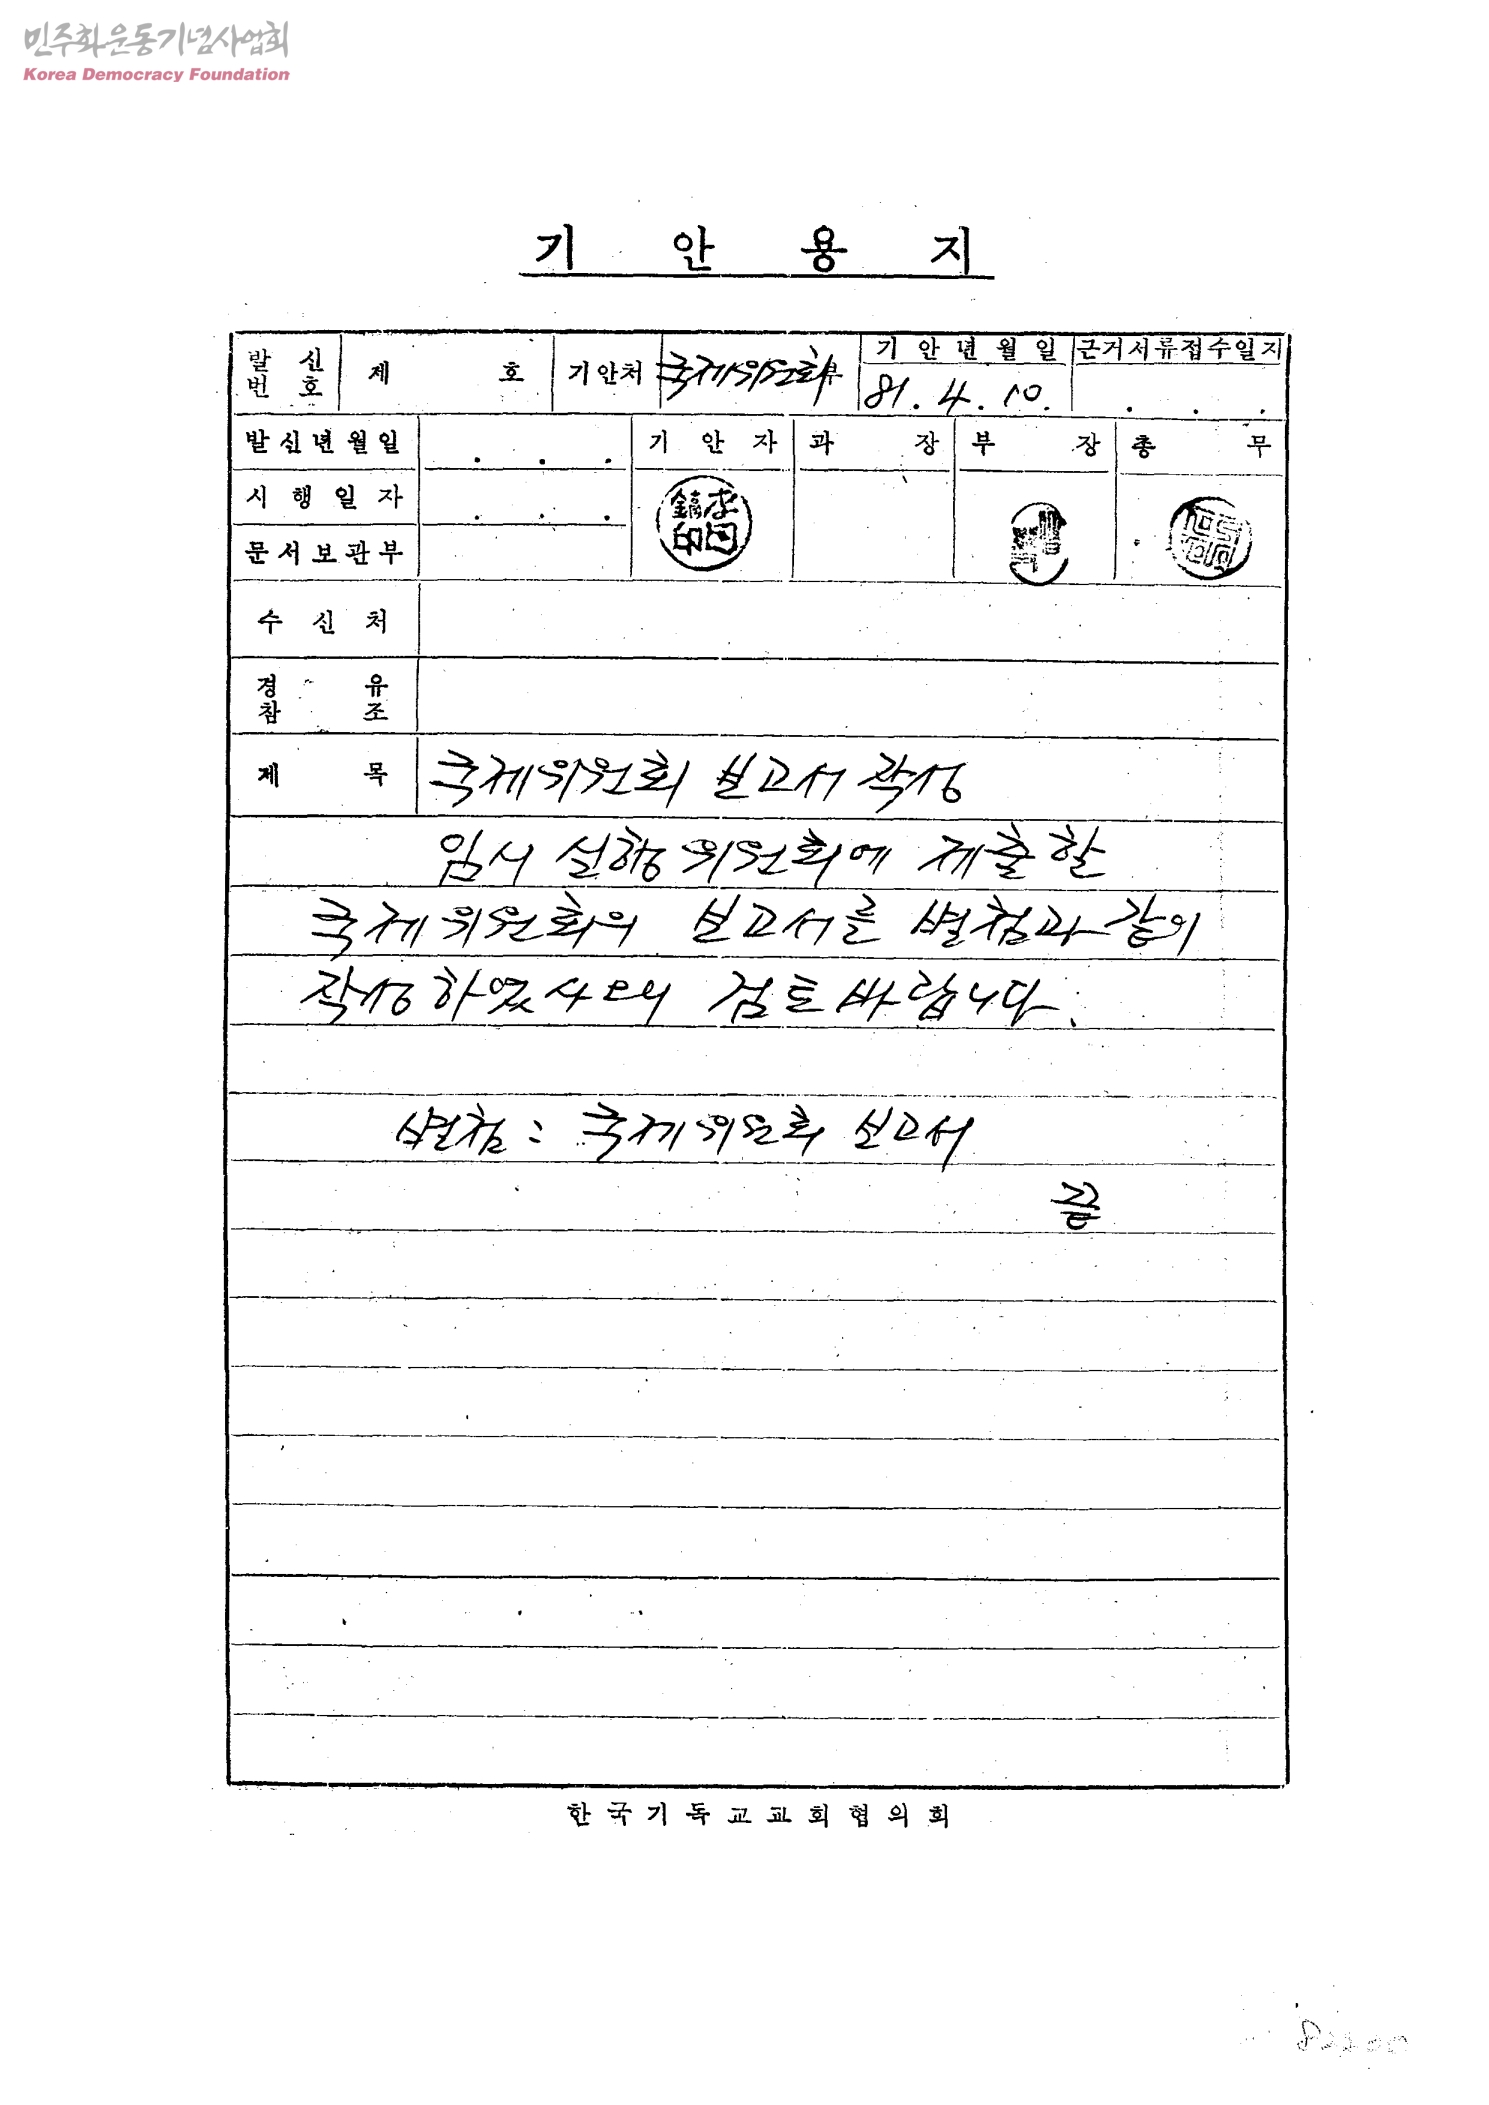 민주화운동기념사업회
Korea Democracy Foundation
기 안 용 지
발 신 번 호 제 호 기안처 국제위원회 부 기 안 년 월 일 근거서류접수일지
81. 4. 10. . . .
발신년월일 . . . 기 안 자 과 장 부 장 총 무
시 행 일 자 . . .
문서보관부
수 신 처
경 유
참 조
제 목 국제위원회 보고서 작성
임시 실행위원회에 제출할
국제위원회의 보고서를 별첨과 같이
작성하였사오니 검토바랍니다.
별첨 : 국제위원회 보고서
끝
한국기독교교회협의회